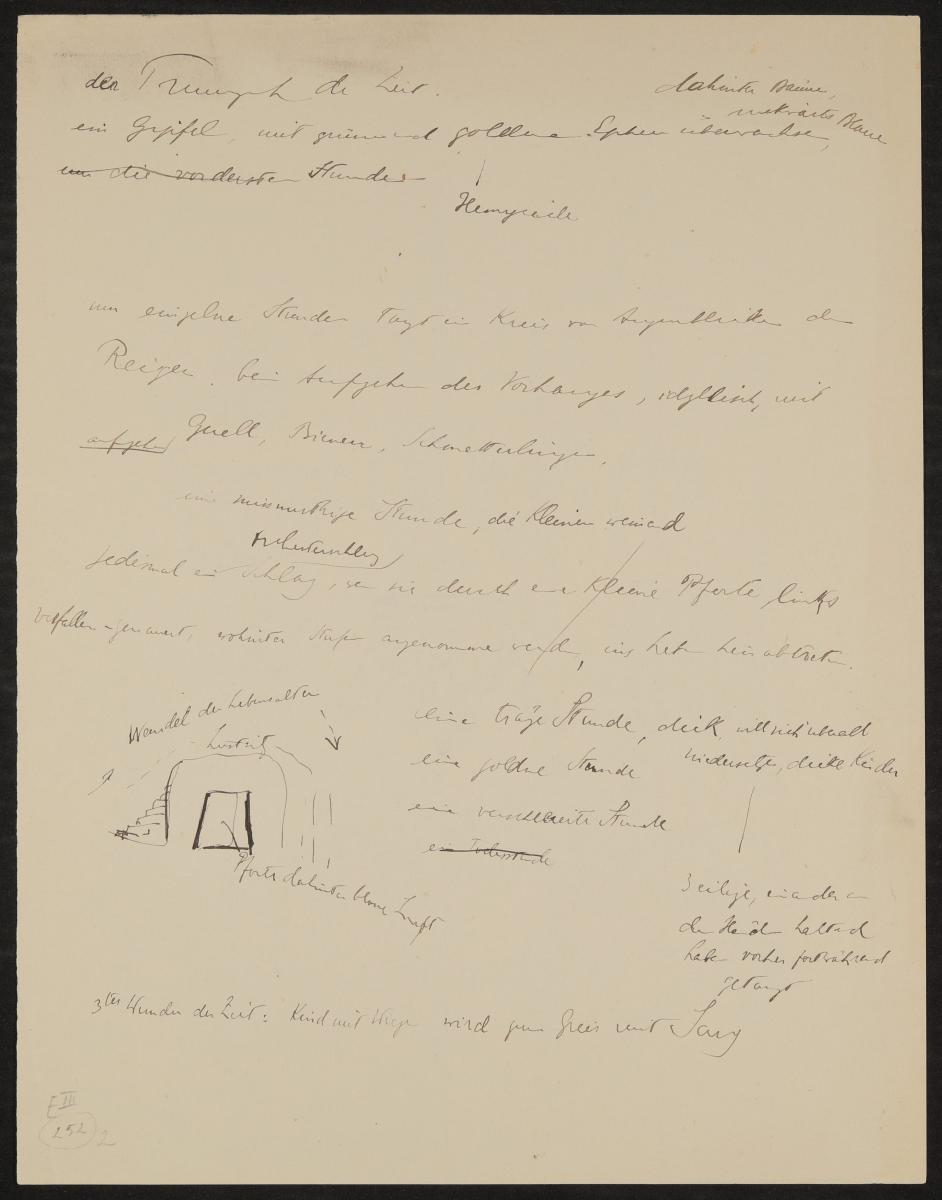 der Triumph der Zeit.
dahinter Bäume,
ein Gipfel, mit grünem und goldenem Epheu überwachsen,
um die vordersten Stunden
Hemycicle
um einzelne Stunden tanzt ein Kreis von Augenblicken den
Reigen. beim Aufgehen des Vorhanges, idyllisch, mit
aufgehen
Quell, Bienen, Schmetterlingen.
eine missmuthige Stunde, die Kleinen weinend
jedesmal ein Schlag, wenn sie durch eine kleine Pforte links
verfallen-gemauert, wohinter Stufen angenommen werden, ins Leben hinabtreten.
Wandel der Lebensalter
Lustsitz
eine träge Stunde, dick, will sich überall
niedersetzen, dicke Kinder
eine goldne Stunde
eine verschleierte Stunde
eine Todesstunde
Pforte dahinter blaue Luft
3 eilige, einander an
den Händen haltend
haben vorher fortwährend
getanzt
3tes Wunder der Zeit: Kind mit Wiege wird zum Greis mit Sarg
E III
252
2